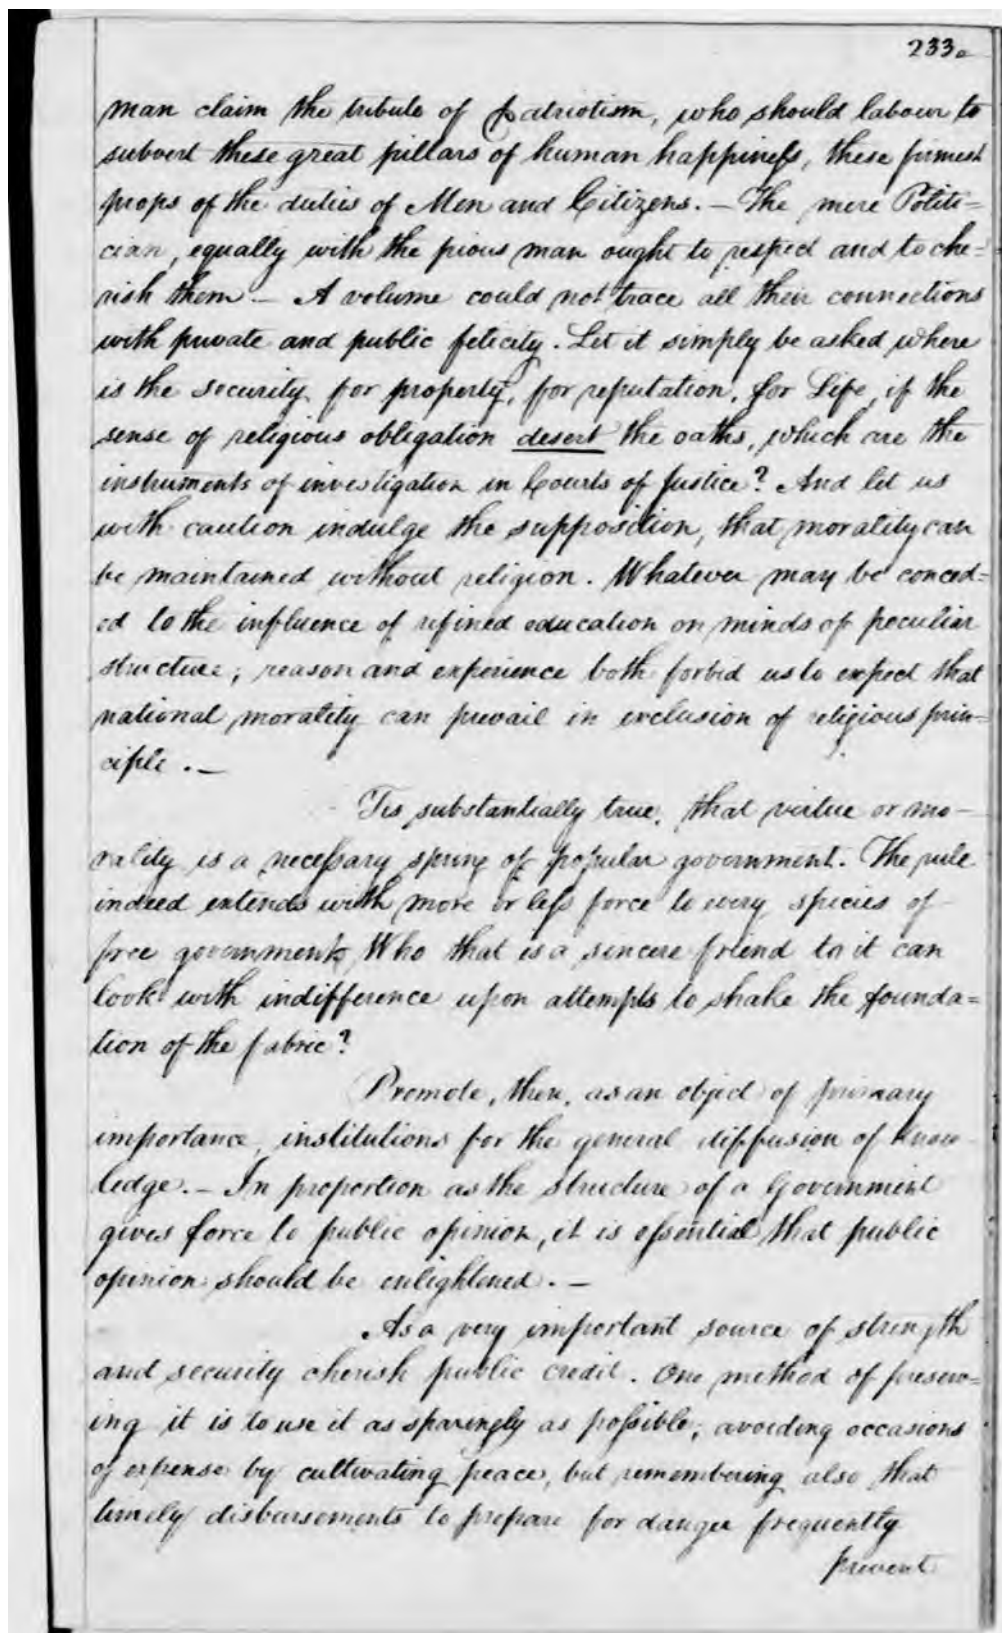 233.
man claim the tribute of Patriotism, who should labour to
subvert these great pillars of human happiness, these firmest
props of the duties of Men and Citizens. — The mere Politi=
cian, equally with the pious man ought to respect and to che=
rish them — A volume could not trace all their connections
with private and public felicity. Let it simply be asked where
is the security for property, for reputation, for Life, if the
sense of religious obligation desert the oaths, which are the
instruments of investigation in Courts of Justice? And let us
with caution indulge the supposition, that morality can
be maintained without religion. Whatever may be conced=
ed to the influence of refined education on minds of peculiar
structure; reason and experience both forbid us to expect that
national morality can prevail in exclusion of religious prin=
ciple. —
Tis substantially true, that virtue or mo—
rality is a necessary spring of popular government. The rule
indeed extends with more or less force to every species of
free government. Who that is a sincere friend to it can
look with indifference upon attempts to shake the founda=
tion of the fabric?
Promote, then, as an object of primary
importance, institutions for the general diffusion of know
ledge. — In proportion as the structure of a Government
gives force to public opinion, it is essential that public
opinion should be enlightened. —
As a very important source of strength
and security cherish public credit. One method of preserv=
ing it is to use it as sparingly as possible; avoiding occasions
of expense by cultivating peace, but remembering also that
timely disbursements to prepare for danger frequently
prevent